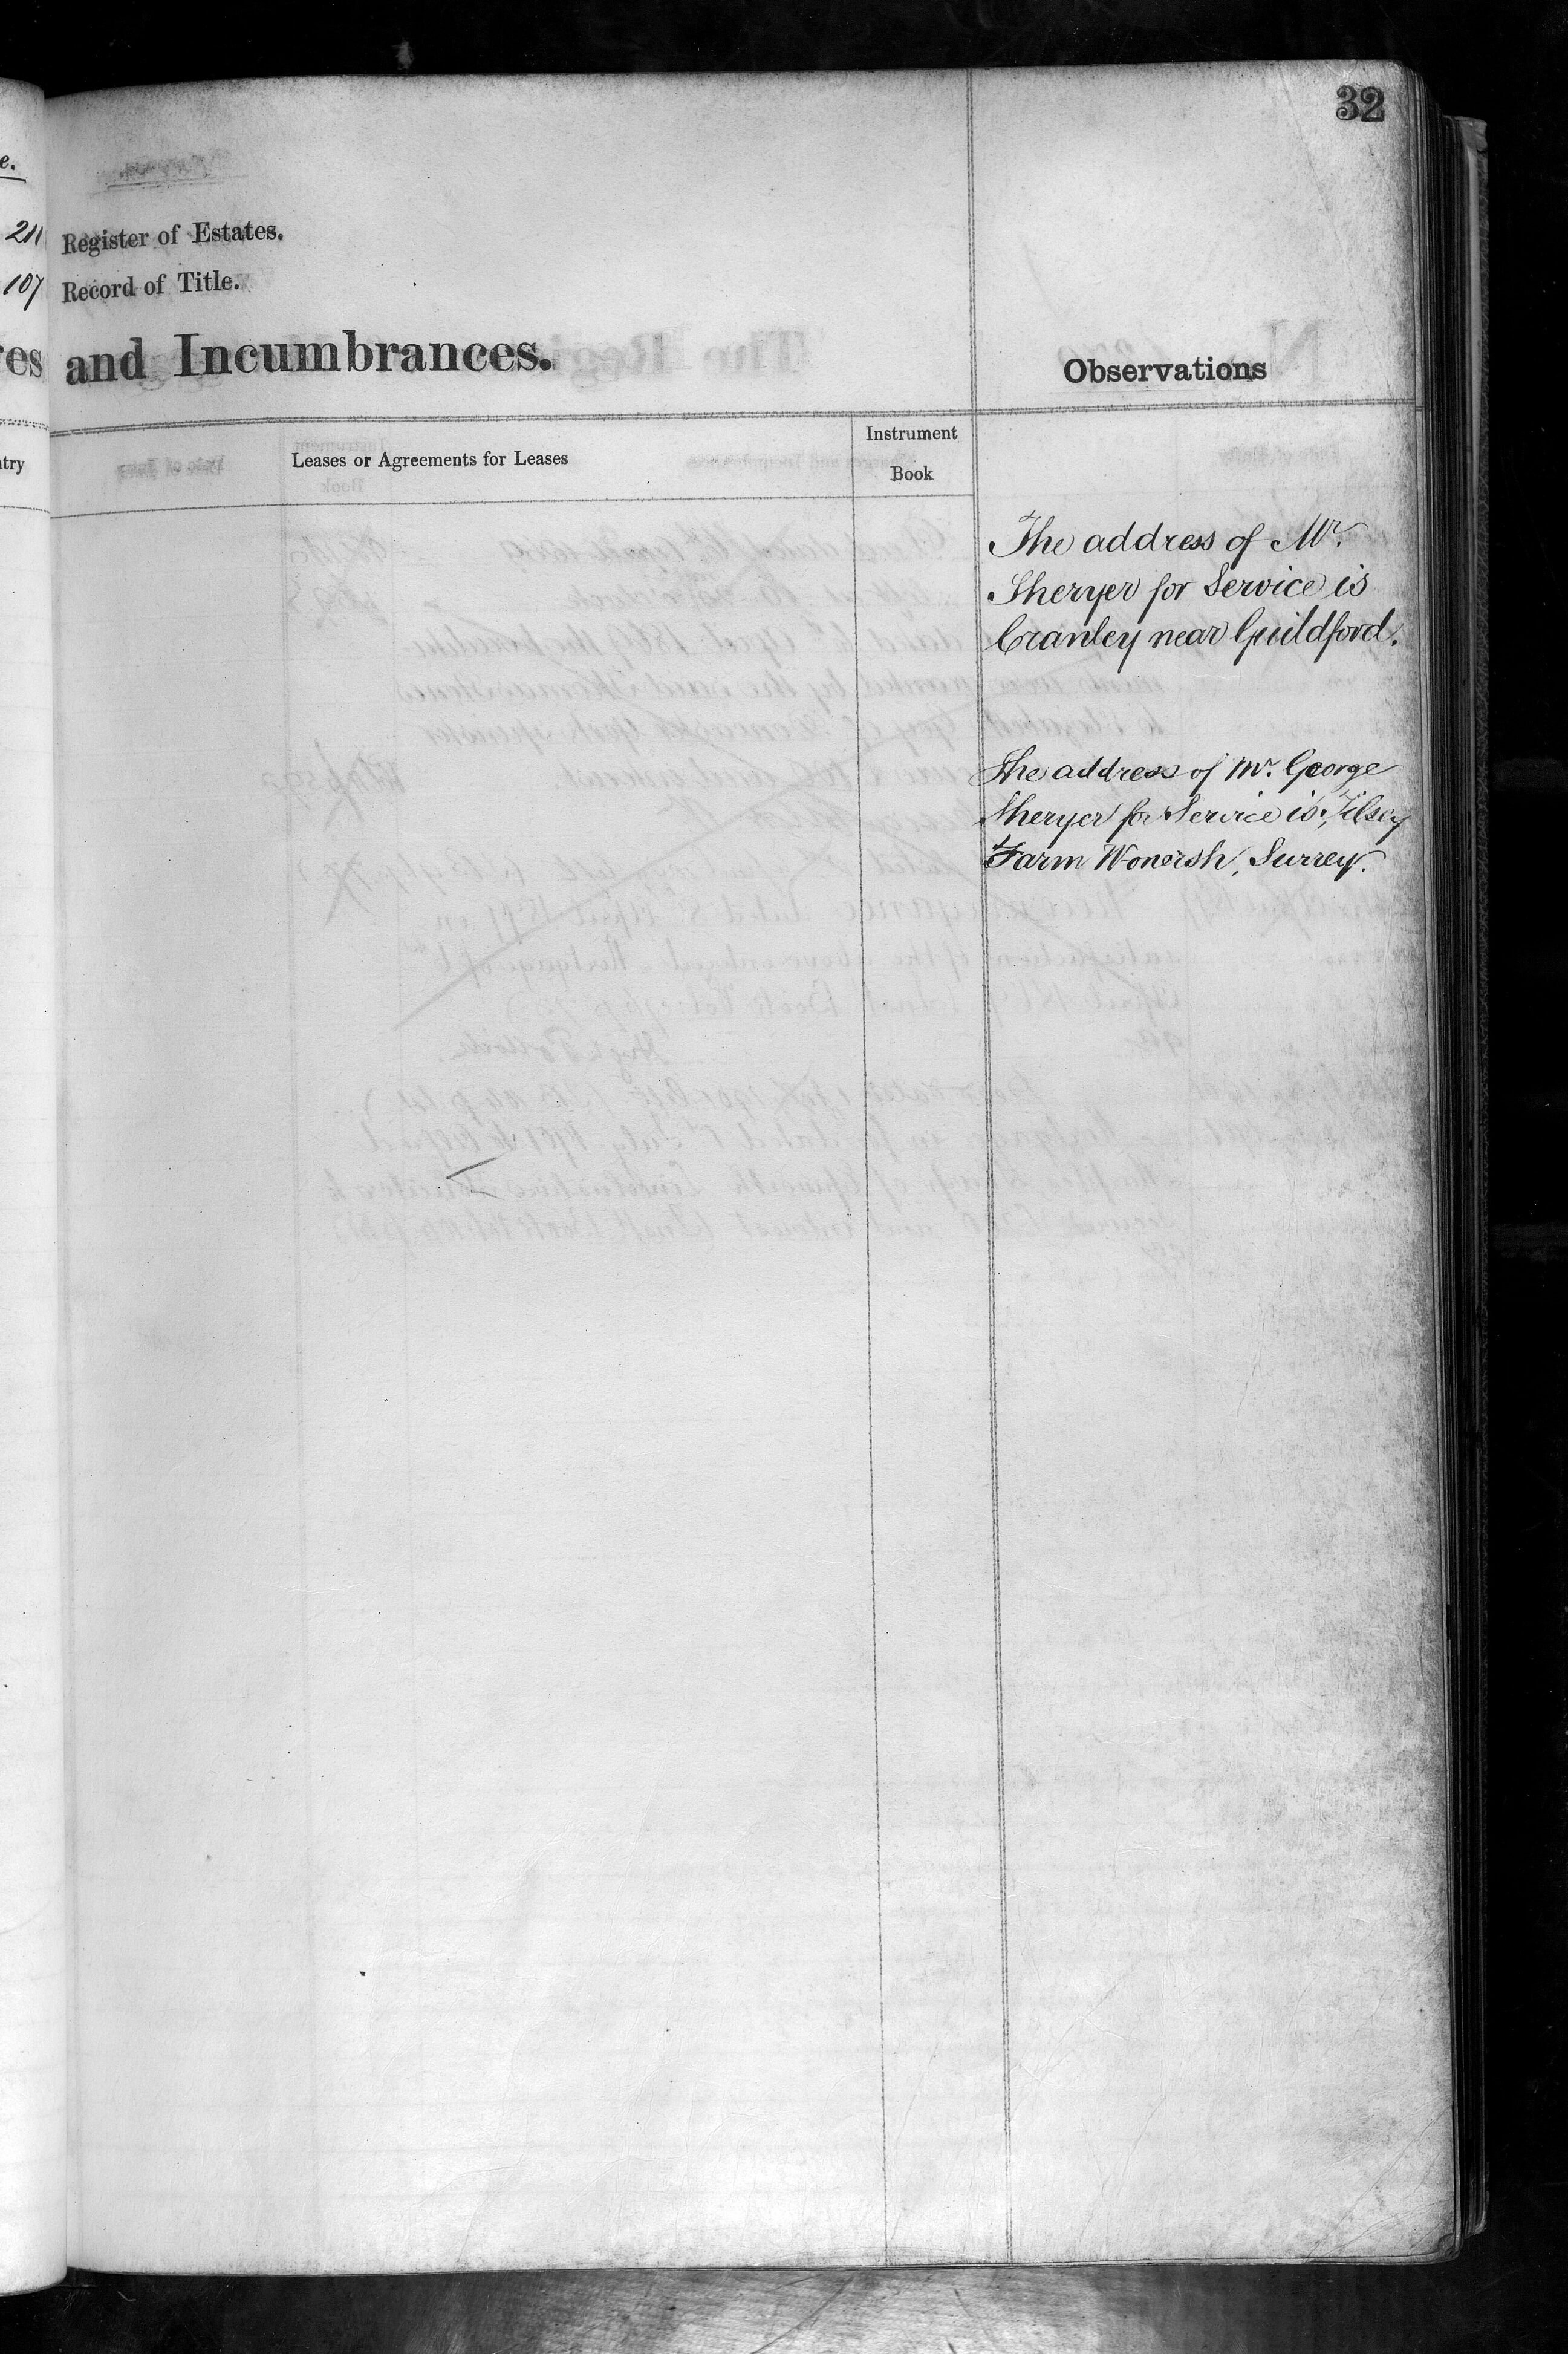 32
e.
211 Register of Estates.
107 Record of Title.
res and Incumbrances.
Observations
try
Leases or Agreements for Leases
Instrument
Book
The address of Mr.
Sheryer for Service is
Cranley near Guildford.
The address of Mr. George
Sheryer for Service is, Tilsey
Farm Wonersh, Surrey.